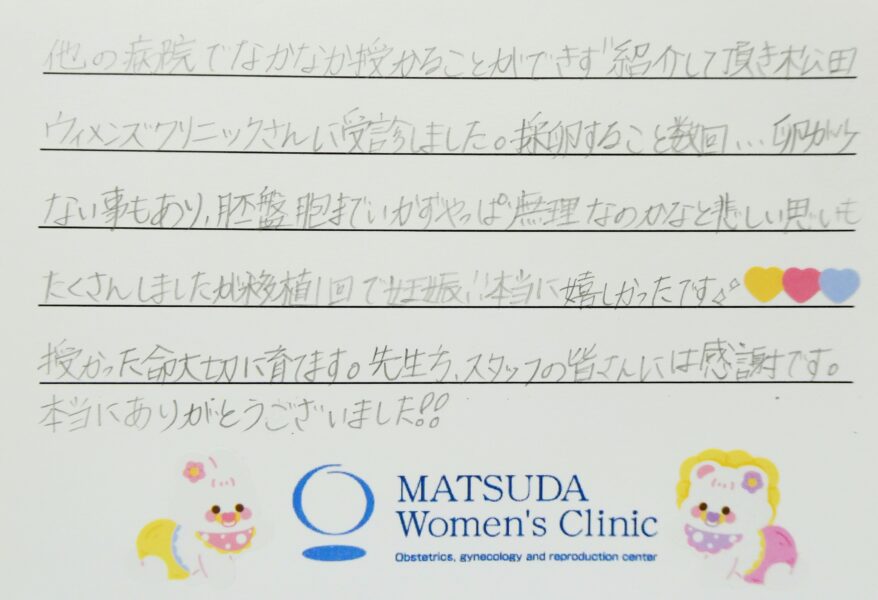 他の病院でなかなか授かることができず紹介して頂き松田
ウィメンズクリニックさんに受診しました。採卵すること数回… 卵がとれ
ない事もあり、胚盤胞までいかずやっぱ無理なのかなと悲しい思いも
たくさんしましたが移植1回で妊娠!!本当に嬉しかったです
授かった命大切に育てます。先生方、スタッフの皆さんには感謝です。
本当にありがとうございました!!
MATSUDA
Women's Clinic
Obstetrics, gynecology and reproduction center